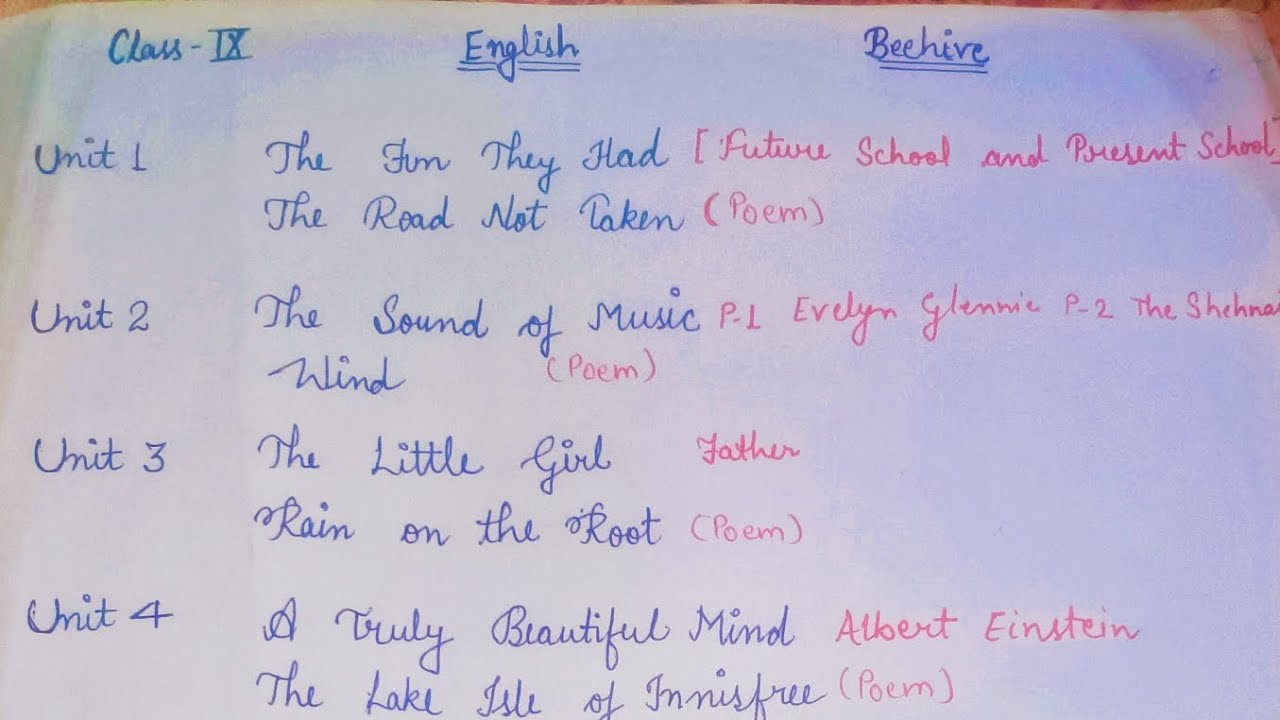 Class - IX English Beehive
Unit 1 The Fun They Had [Future School and Present School]
The Road Not Taken (Poem)
Unit 2 The Sound of Music P-1 Evelyn Glennie P-2 The Shehnai
Wind (Poem)
Unit 3 The Little Girl Father
Rain on the Root (Poem)
Unit 4 A Truly Beautiful Mind Albert Einstein
The Lake Isle of Innisfree (Poem)